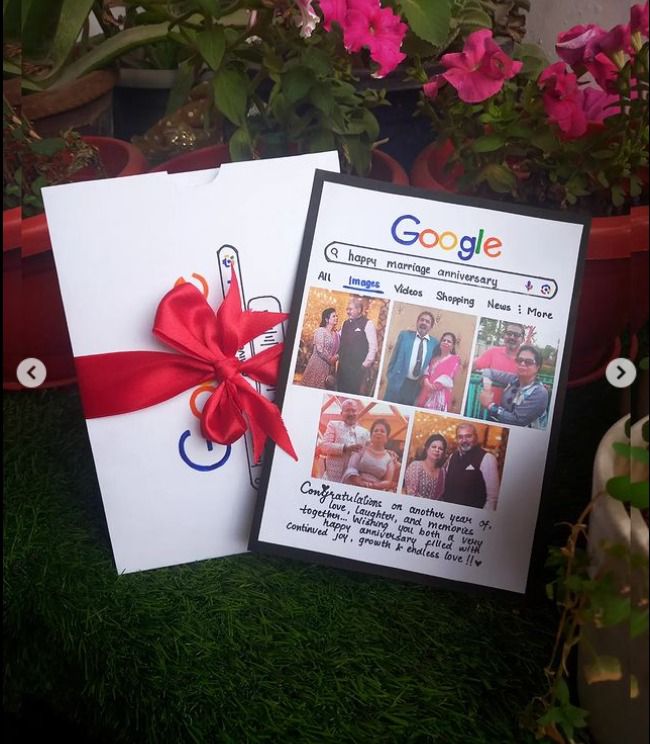 Google
happy marriage anniversary
All Images Videos Shopping News : More
Congratulations on another year of
love, laughter, and memories
together... Wishing you both a very
happy anniversary filled with
continued joy, growth & endless love !!
Go